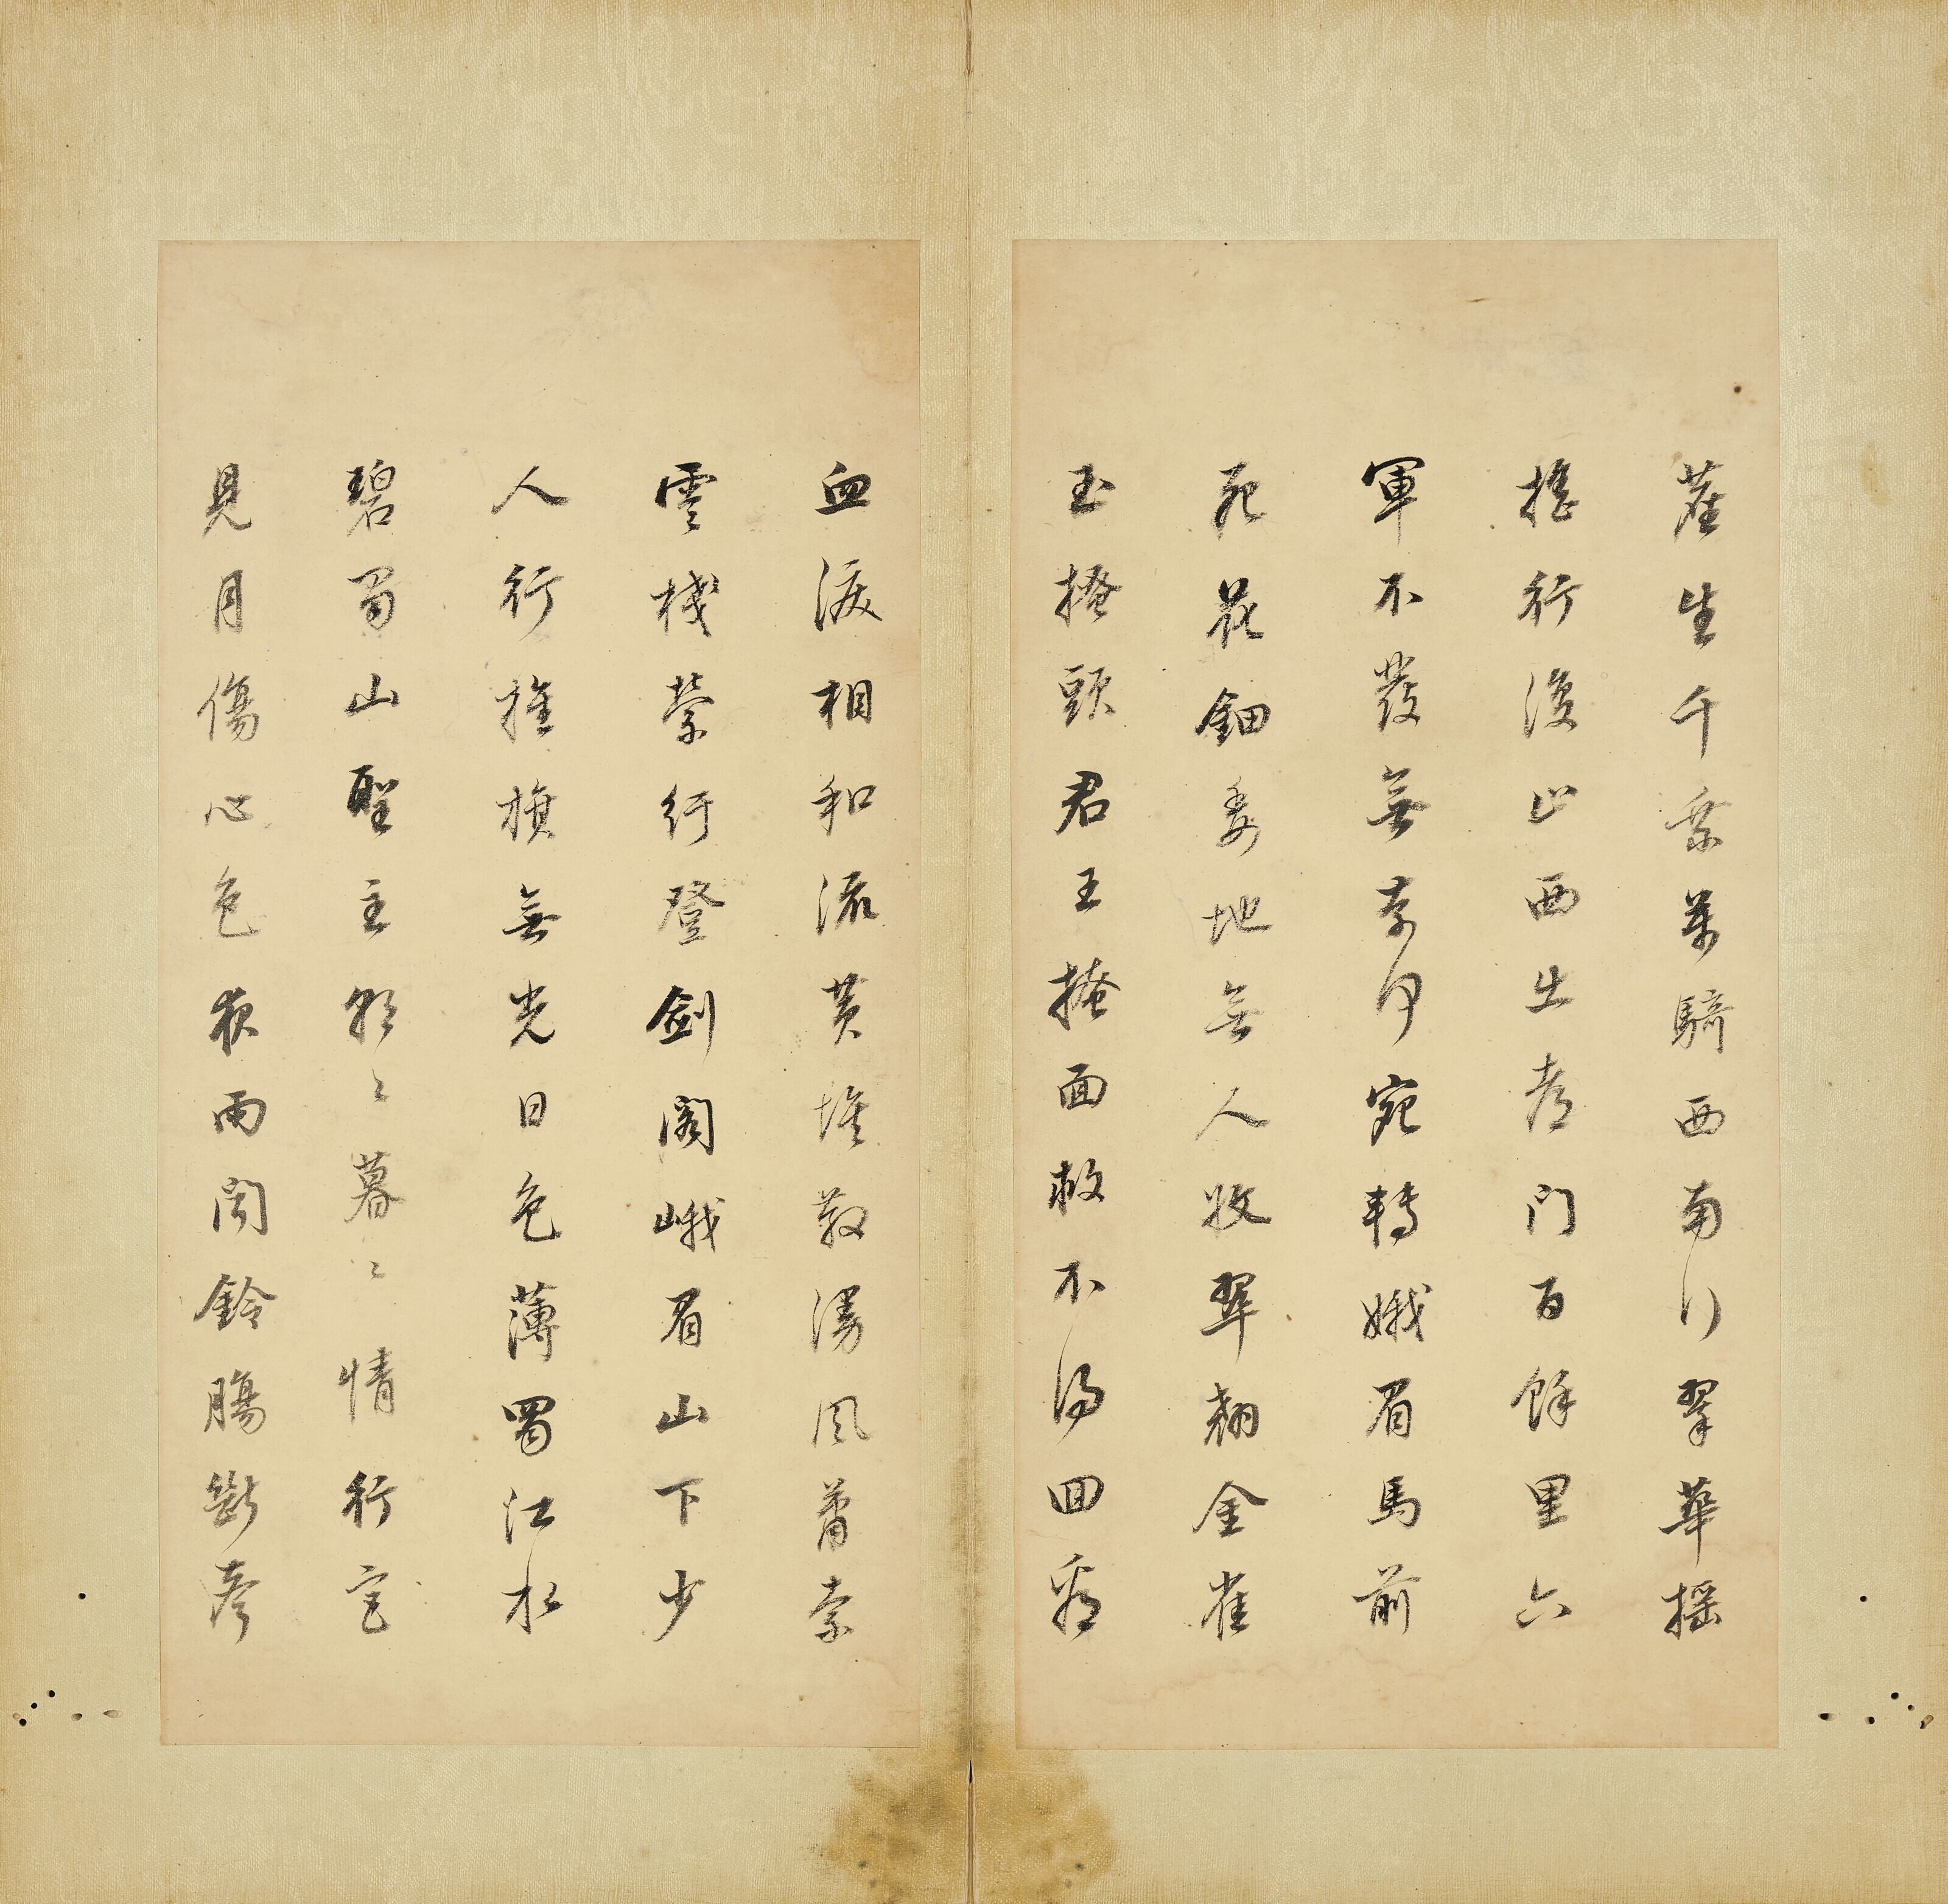 塵生千乘萬騎西南行翠華搖
搖行復止西出都門百餘里六
軍不發無奈何宛轉娥眉馬前
死花鈿委地無人收翠翹金雀
玉搔頭君王掩面救不得回看
血淚相和流黃埃散漫風蕭索
雲棧縈紆登劍閣峨眉山下少
人行旌旗無光日色薄蜀江水
碧蜀山聖主朝々暮々情行宮
見月傷心色夜雨聞鈴腸斷聲